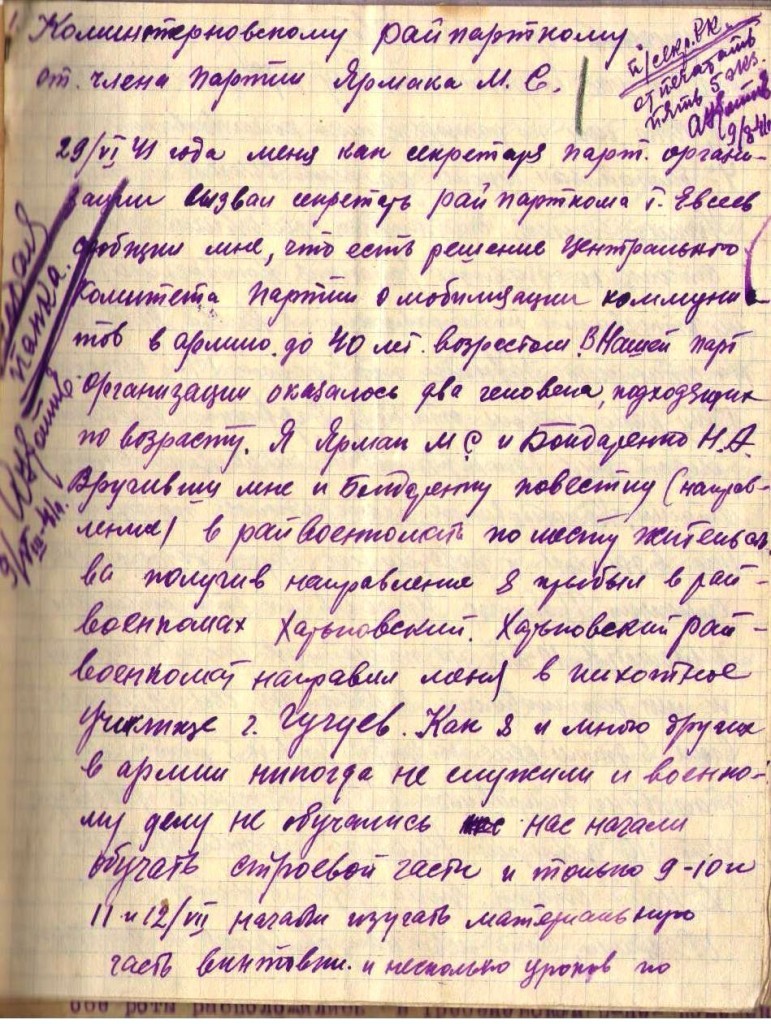 1.
Коминтерновскому райпарткому
от члена партии Ярмака М. С.
отпечатать
пять экз.
9/8-41
29/VI 41 года меня как секретаря парт. органи-
зации вызвал секретарь райпарткома т. Евсеев
сообщил мне, что есть решение Центрального
Комитета партии о мобилизации коммунис-
тов в армию до 40 лет возрастом. В нашей парт
организации оказалось два человека, подходящих
по возрасту. Я Ярмак М С и Бондаренко Н. А.
Вручивши мне и Бондаренку повестки (направ-
ления) в райвоенкомать по месту жительст-
ва получив направление я прибыл в рай-
военкомах Харьковский. Харьковский рай-
военкомат направил меня в пихотное
училище г. Чугуев. Как я и много других
в армии никогда не служили и военно-
му делу не обучались нас начали
обучать строевой части и только 9-10 и
11 и 12/VII начали изучать материальную
часть винтовки. и несколько уроков по
папка.
9/VIII-41 г.
обе роты расположились